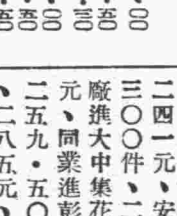 二四一元、安
三〇〇件、二
廠進大中集花
元、同業進彭
二五九·五〇
、二八五元、